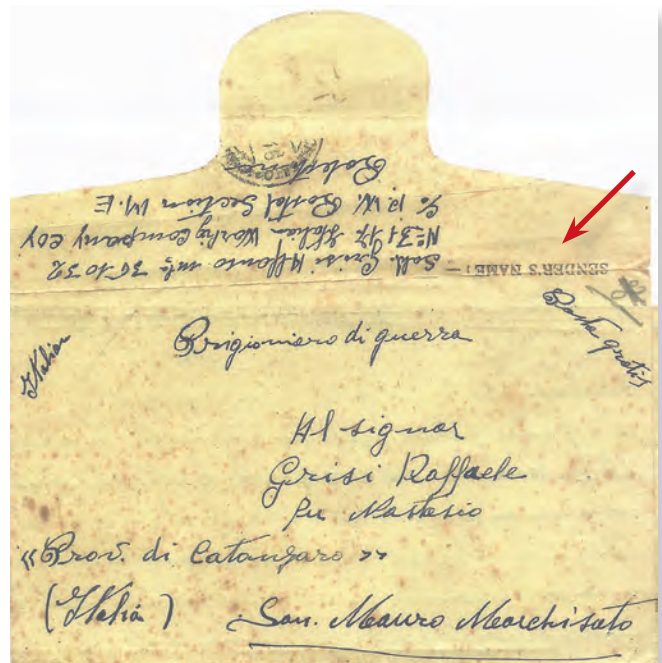 SENDER'S NAME:— Sold. Grisi Alfonso int: 361032
N:o 3117 Italian Workig Company Coy
C/o P.W. Postal Section M.E
Palestine
Italia
Prigioniero di guerra
Posta gratis
Al signor
Grisi Raffaele
fu Nastasio
«Prov. di Catanzaro»
(Italia) San. Mauro Marchisato